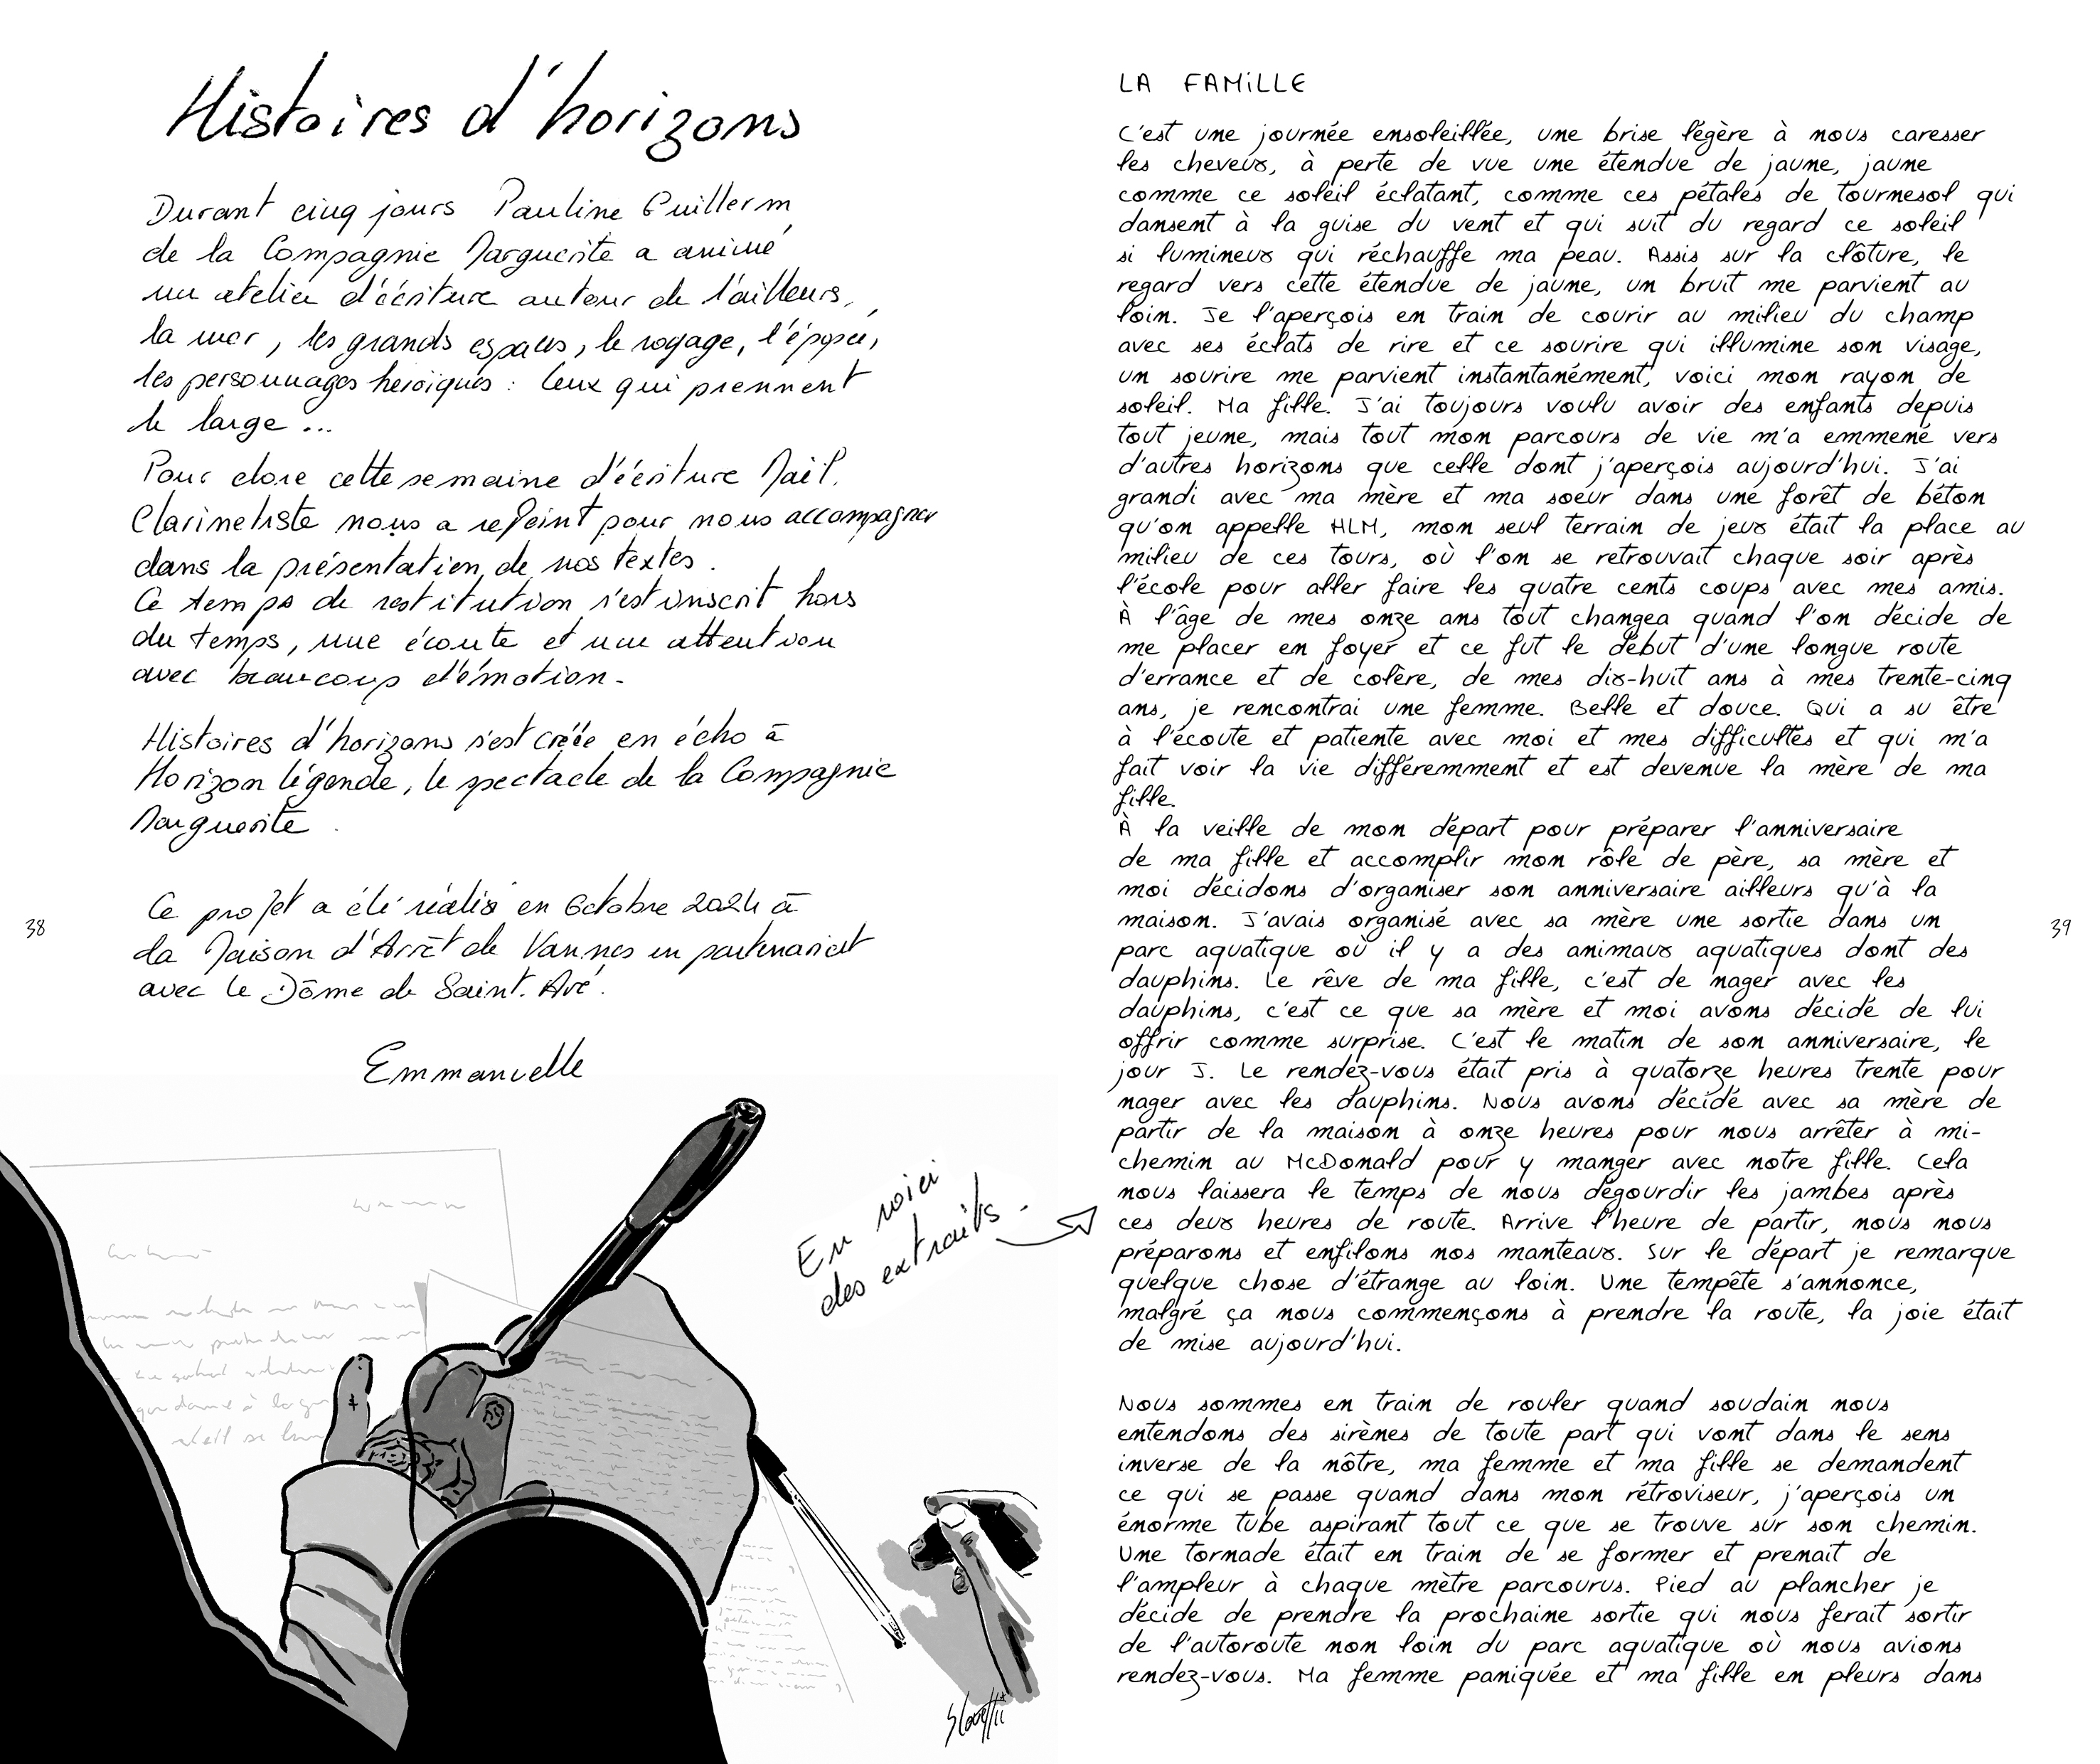 Histoires d'horizons
Durant cinq jours Pauline Guillerm
de la Compagnie Marguerite a animé
un atelier d'écriture autour de l'ailleurs,
la mer, les grands espaces, le voyage, l'épopée,
les personnages héroïques : Ceux qui prennent
le large ...
Pour clore cette semaine d'écriture Maël,
Clarinettiste nous a rejoint pour nous accompagner
dans la présentation de nos textes.
Ce temps de restitution s'est inscrit hors
du temps, une écoute et une attention
avec beaucoup d'émotion.
Histoires d'horizons s'est créée en écho à
Horizon légende, le spectacle de la Compagnie
Marguerite.
Ce projet a été réalisé en Octobre 2024 à
la Maison d'Arrêt de Vannes en partenariat
avec le Dôme de Saint. Avé.
Emmanuelle
38
En voici
des extraits.
LA FAMILLE
C'est une journée ensoleillée, une brise légère à nous caresser
les cheveux, à perte de vue une étendue de jaune, jaune
comme ce soleil éclatant, comme ces pétales de tournesol qui
dansent à la guise du vent et qui suit du regard ce soleil
si lumineux qui réchauffe ma peau. Assis sur la clôture, le
regard vers cette étendue de jaune, un bruit me parvient au
loin. Je l'aperçois en train de courir au milieu du champ
avec ses éclats de rire et ce sourire qui illumine son visage,
un sourire me parvient instantanément, voici mon rayon de
soleil. Ma fille. J'ai toujours voulu avoir des enfants depuis
tout jeune, mais tout mon parcours de vie m'a emmené vers
d'autres horizons que celle dont j'aperçois aujourd'hui. J'ai
grandi avec ma mère et ma soeur dans une forêt de béton
qu'on appelle HLM, mon seul terrain de jeux était la place au
milieu de ces tours, où l'on se retrouvait chaque soir après
l'école pour aller faire les quatre cents coups avec mes amis.
À l'âge de mes onze ans tout changea quand l'on décide de
me placer en foyer et ce fut le début d'une longue route
d'errance et de colère, de mes dix-huit ans à mes trente-cinq
ans, je rencontrai une femme. Belle et douce. Qui a su être
à l'écoute et patiente avec moi et mes difficultés et qui m'a
fait voir la vie différemment et est devenue la mère de ma
fille.
À la veille de mon départ pour préparer l'anniversaire
de ma fille et accomplir mon rôle de père, sa mère et
moi décidons d'organiser son anniversaire ailleurs qu'à la
maison. J'avais organisé avec sa mère une sortie dans un
parc aquatique où il y a des animaux aquatiques dont des
dauphins. Le rêve de ma fille, c'est de nager avec les
dauphins, c'est ce que sa mère et moi avons décidé de lui
offrir comme surprise. C'est le matin de son anniversaire, le
jour J. Le rendez-vous était pris à quatorze heures trente pour
nager avec les dauphins. Nous avons décidé avec sa mère de
partir de la maison à onze heures pour nous arrêter à mi-
chemin au McDonald pour y manger avec notre fille. Cela
nous laissera le temps de nous dégourdir les jambes après
ces deux heures de route. Arrive l'heure de partir, nous nous
préparons et enfilons nos manteaux. Sur le départ je remarque
quelque chose d'étrange au loin. Une tempête s'annonce,
malgré ça nous commençons à prendre la route, la joie était
de mise aujourd'hui.
Nous sommes en train de rouler quand soudain nous
entendons des sirènes de toute part qui vont dans le sens
inverse de la nôtre, ma femme et ma fille se demandent
ce qui se passe quand dans mon rétroviseur, j'aperçois un
énorme tube aspirant tout ce que se trouve sur son chemin.
Une tornade était en train de se former et prenait de
l'ampleur à chaque mètre parcourus. Pied au plancher je
décide de prendre la prochaine sortie qui nous ferait sortir
de l'autoroute non loin du parc aquatique où nous avions
rendez-vous. Ma femme paniquée et ma fille en pleurs dans
39